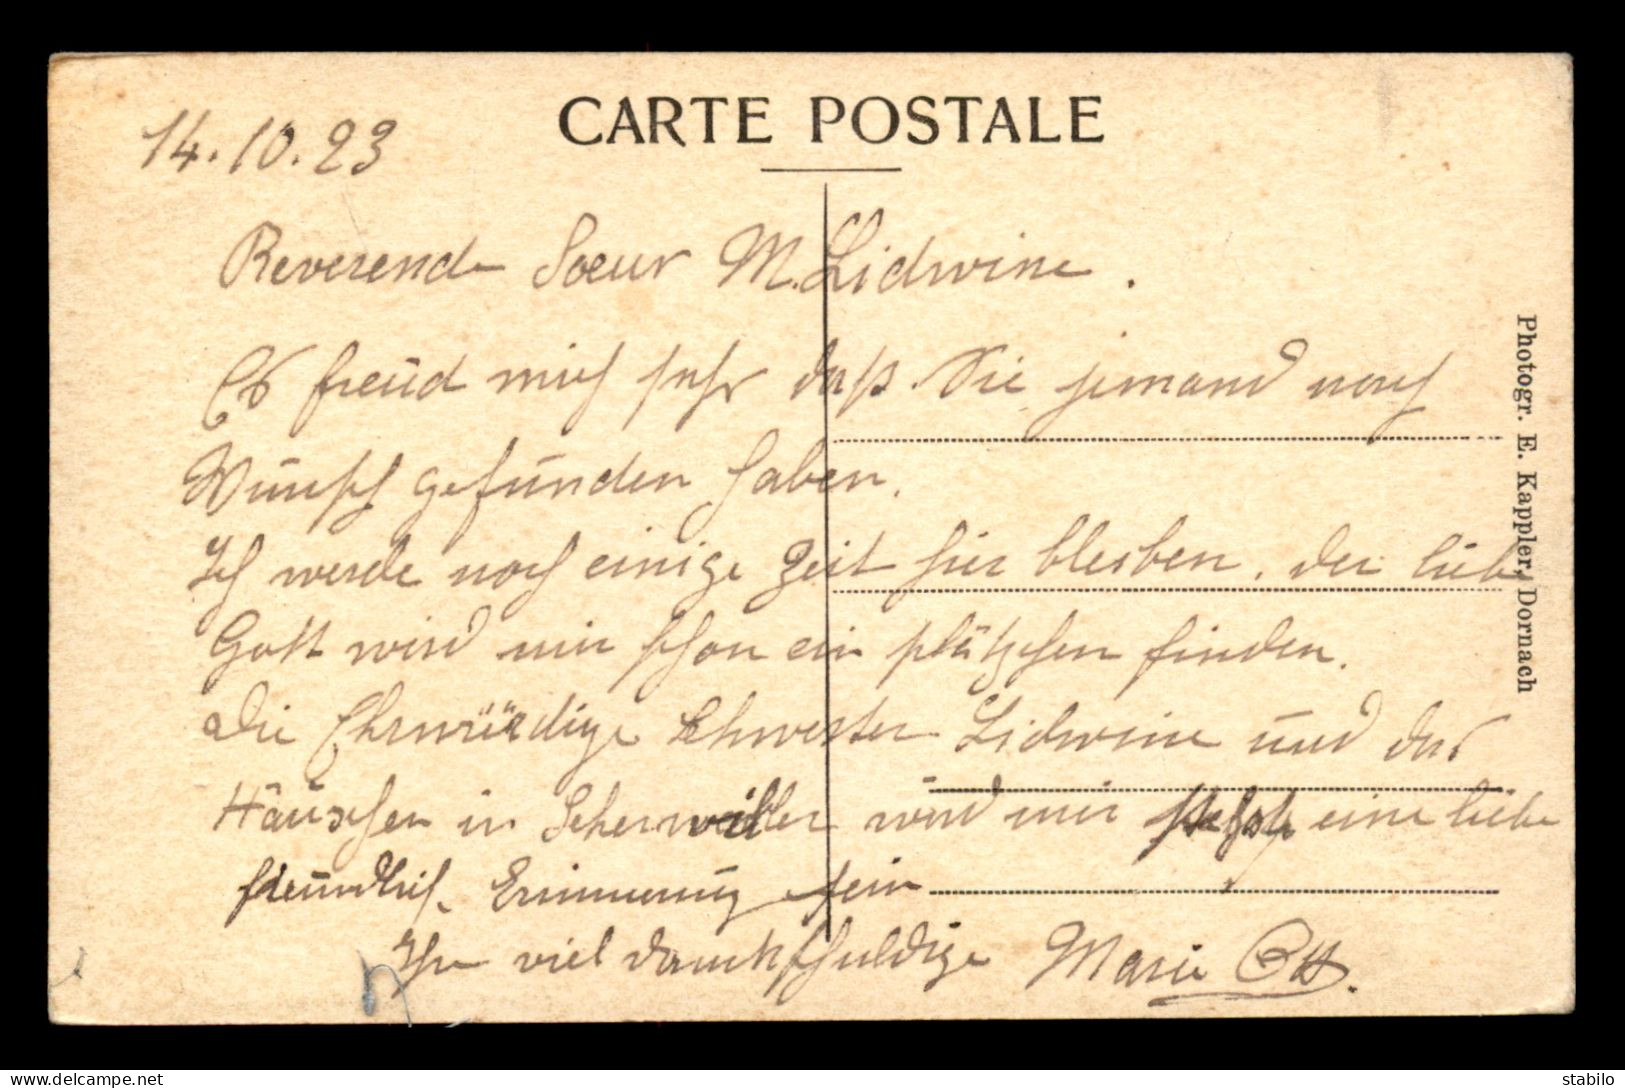 CARTE POSTALE
14.10.23
Reverende Soeur M. Lidwine.
Es freud mich sehr daß Sie jemand nach
Wunsch gefunden haben.
Ich werde noch einige Zeit hier bleiben. Der liebe
Gott wird mir schon ein plätzchen finden.
Die Ehrwürdige Schwester Lidwine und das
Häuschen in Scherweiller wird mir stets eine liebe
freundlich. Erinnerung sein
Ihr viel dankschuldige Marie Ott.
Photogr. E. Kappler, Dornach
stabilo